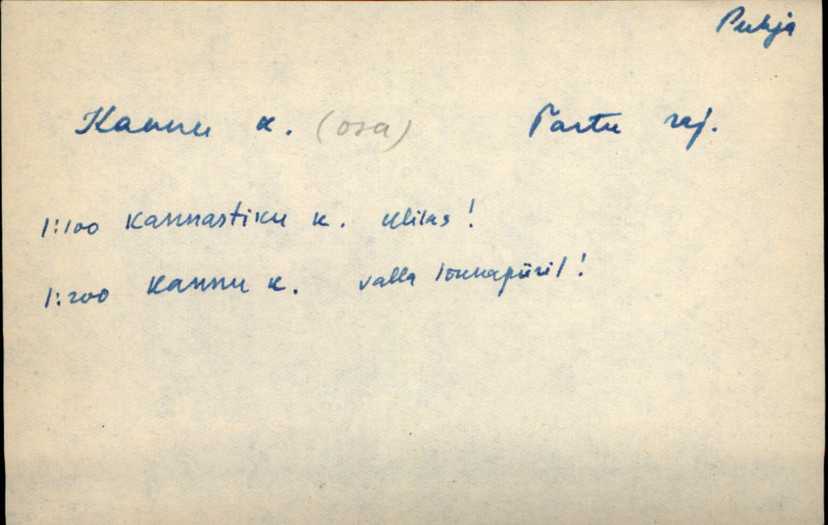 Puhja
Kannu k. (osa) Tartu raj.
1:100 Kannastiku k. Ulilas!
1:200 Kannu k. valla lõunapiiril!